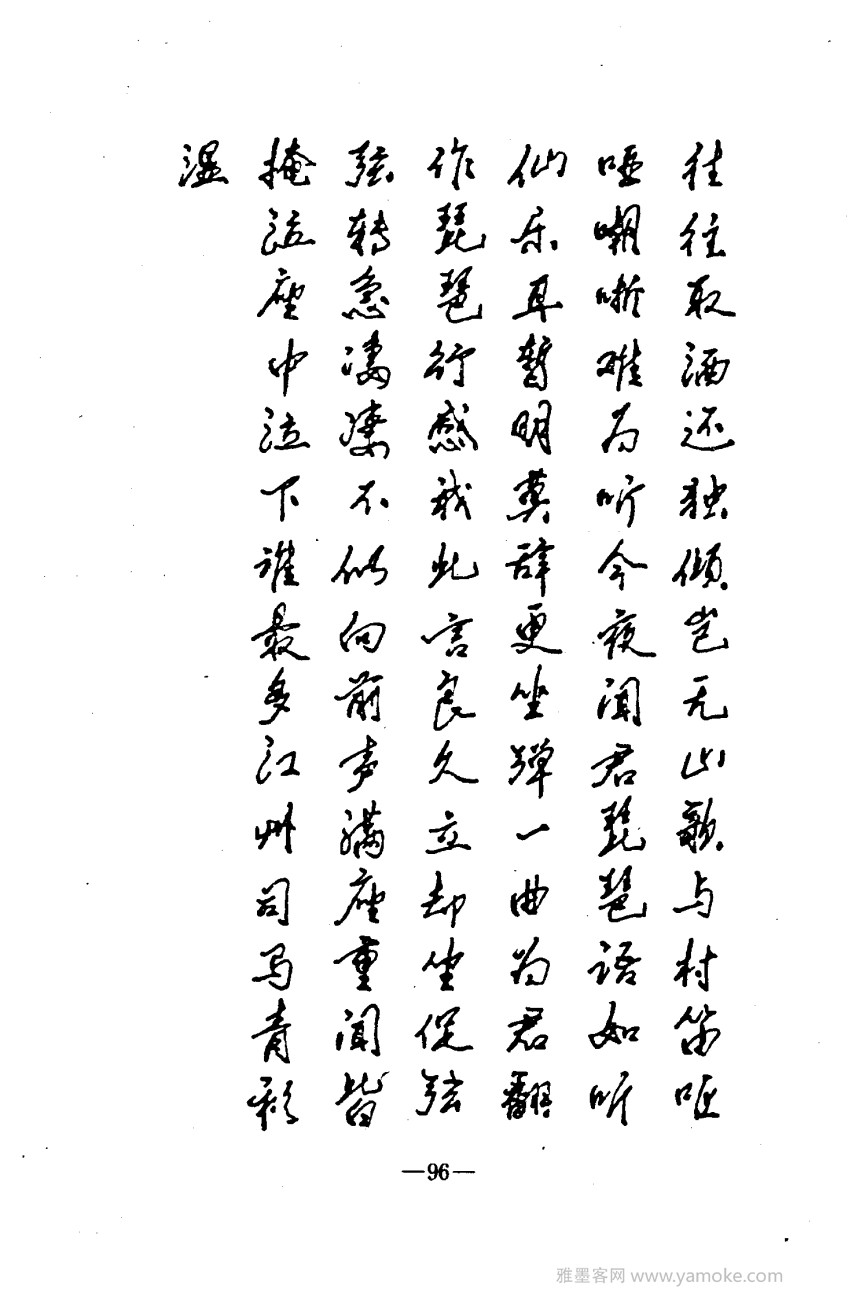 往往取酒还独倾岂无山歌与村笛呕
哑嘲哳难为听今夜闻君琵琶语如听
仙乐耳暂明莫辞更坐弹一曲为君翻
作琵琶行感我此言良久立却坐促弦
弦转急凄凄不似向前声满座重闻皆
掩泣座中泣下谁最多江州司马青衫
湿
—96—
雅墨客网 www.yamoke.com